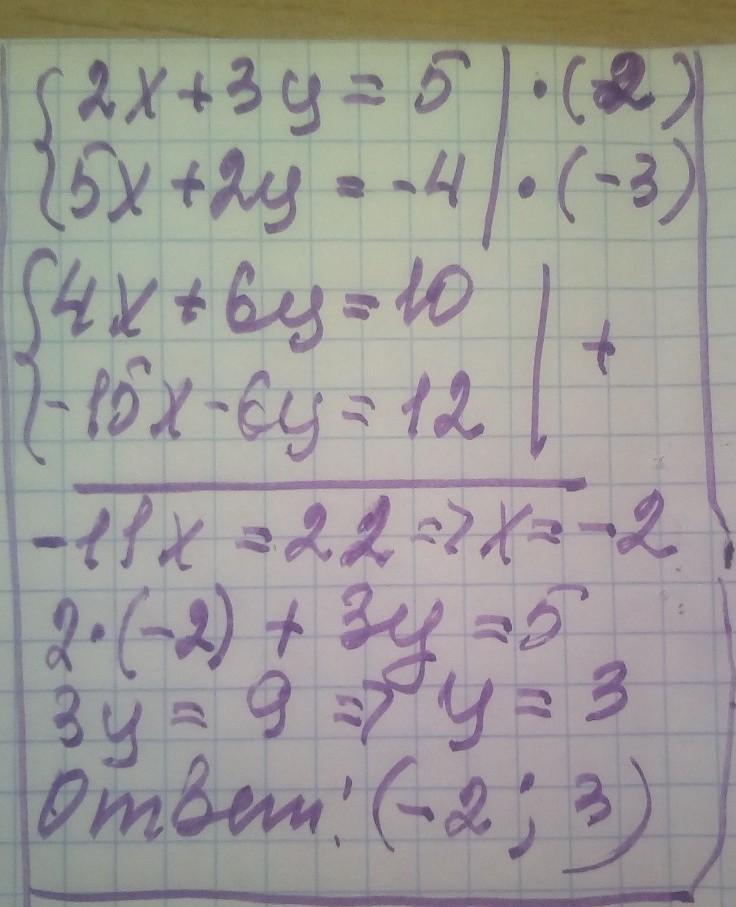 {2x + 3y = 5 | · (-2)
{5x + 2y = -4 | · (-3)
{4x + 6y = 10
{-15x - 6y = 12 | +
-11x = 22 => x = -2
2 · (-2) + 3y = 5
3y = 9 => y = 3
Ответ: (-2; 3)